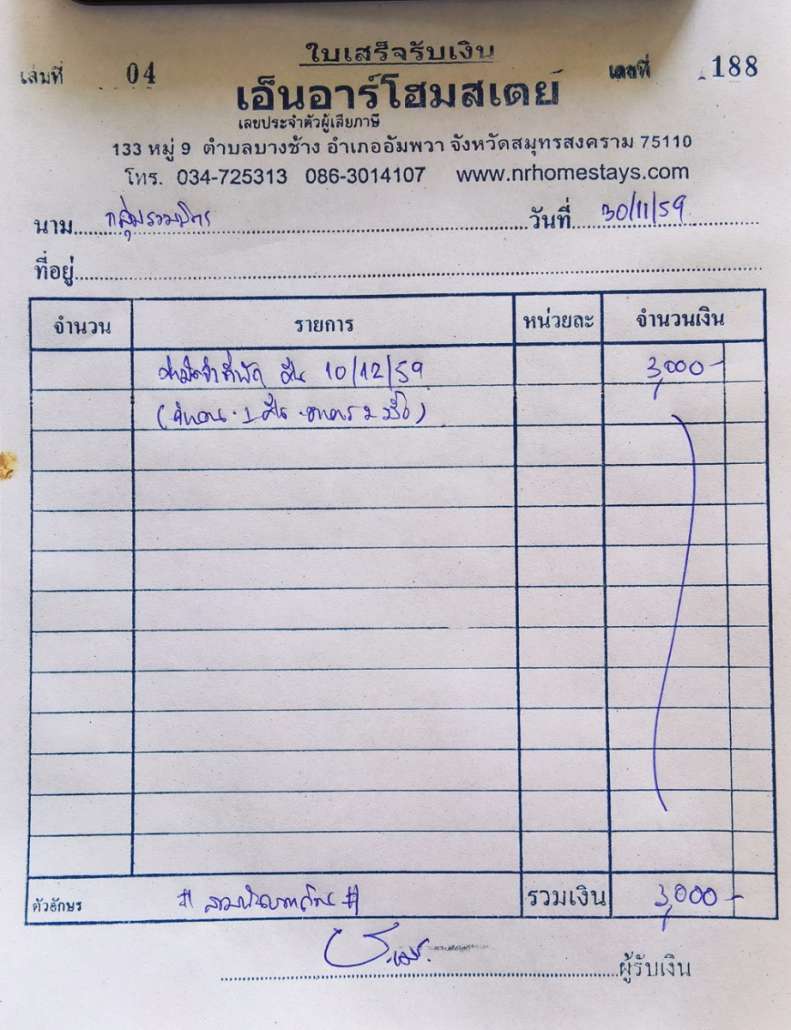 ใบเสร็จรับเงิน
เล่มที่ 04 เลขที่ 188
เอ็นอาร์โฮมสเตย์
เลขประจำตัวผู้เสียภาษี
133 หมู่ 9 ตำบลบางช้าง อำเภออัมพวา จังหวัดสมุทรสงคราม 75110
โทร. 034-725313 086-3014107 www.nrhomestays.com
นาม กลุ่มรวมมิตร วันที่ 30/11/59
ที่อยู่
จำนวน รายการ หน่วยละ จำนวนเงิน
ค่ามัดจำที่พัก วัน 10/12/59 3,000-
อาหาร 2 มื้อ)
ตัวอักษร # สามพันบาทถ้วน # รวมเงิน 3,000-
ผู้รับเงิน